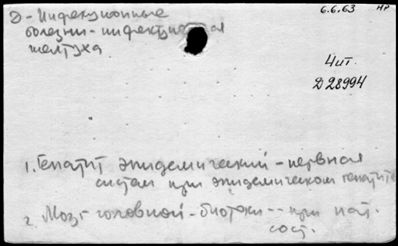 Д - Инфекционные
болезни - инфекционная
желтуха
6.6.63 НР
Чит.
Д 28994
1. Гепатит эпидемический - нервная
система при эпидемическом гепатите
2. Мозг головной - биотоки -- при пат.
сост.